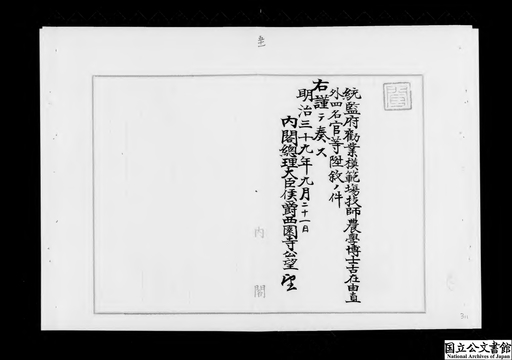 統監府勸業模範場技師農學博士古在由直
外四名官等陞敍ノ件
右謹テ奏ス
明治三十九年九月二十一日
内閣總理大臣侯爵西園寺公望
内閣
国立公文書館
National Archives of Japan